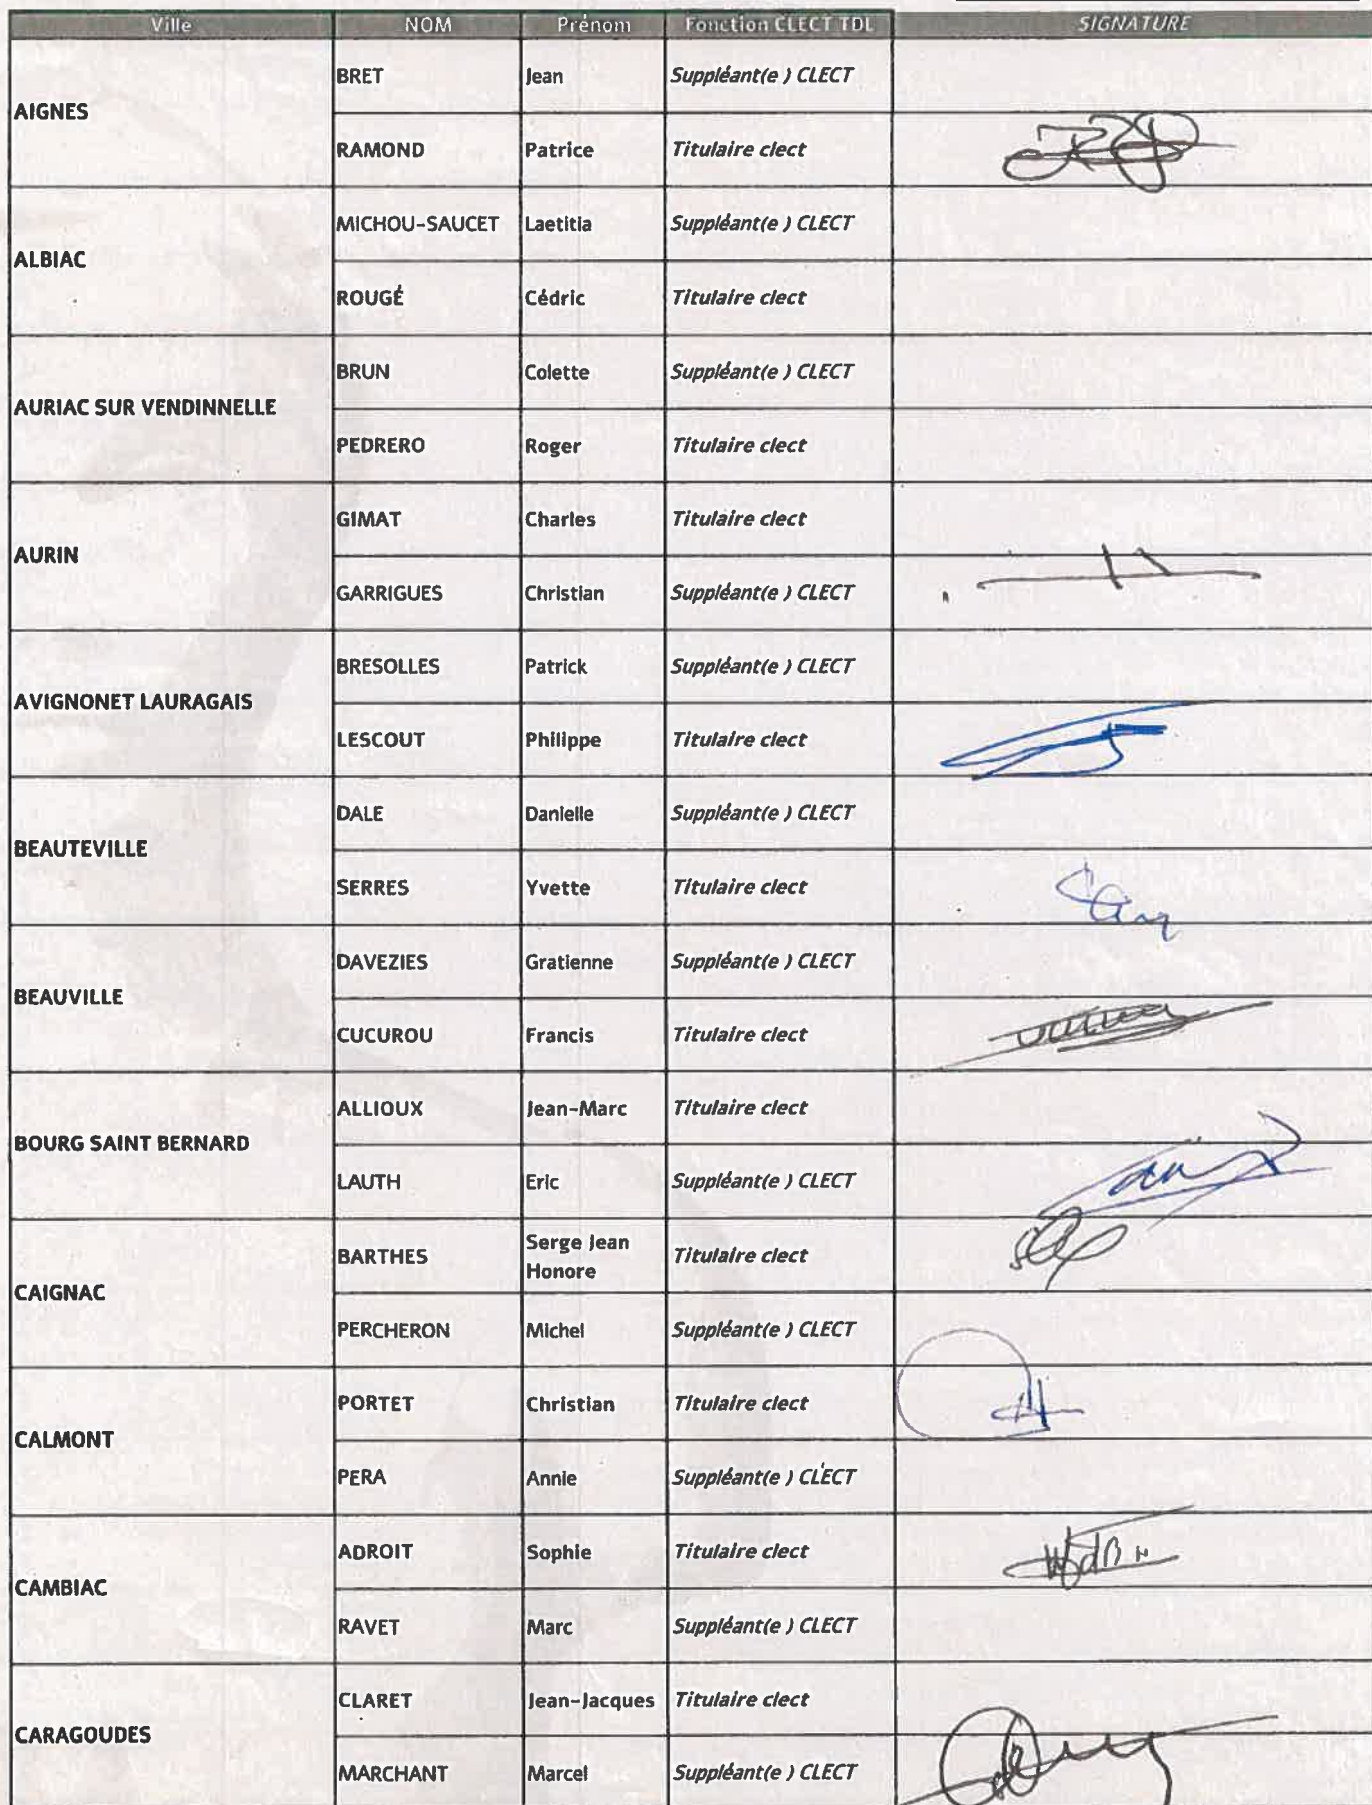 Ville NOM Prénom Fonction CLECT TDL SIGNATURE
AIGNES
BRET Jean Suppléant(e ) CLECT
RAMOND Patrice Titulaire clect
ALBIAC
MICHOU-SAUCET Laetitia Suppléant(e ) CLECT
ROUGÉ Cédric Titulaire clect
AURIAC SUR VENDINNELLE
BRUN Colette Suppléant(e ) CLECT
PEDRERO Roger Titulaire clect
AURIN
GIMAT Charles Titulaire clect
GARRIGUES Christian Suppléant(e ) CLECT
AVIGNONET LAURAGAIS
BRESOLLES Patrick Suppléant(e ) CLECT
LESCOUT Philippe Titulaire clect
BEAUTEVILLE
DALE Danielle Suppléant(e ) CLECT
SERRES Yvette Titulaire clect
BEAUVILLE
DAVEZIES Gratienne Suppléant(e ) CLECT
CUCUROU Francis Titulaire clect
BOURG SAINT BERNARD
ALLIOUX Jean-Marc Titulaire clect
LAUTH Eric Suppléant(e ) CLECT
CAIGNAC
BARTHES Serge Jean Titulaire clect
Honore
PERCHERON Michel Suppléant(e ) CLECT
CALMONT
PORTET Christian Titulaire clect
PERA Annie Suppléant(e ) CLECT
CAMBIAC
ADROIT Sophie Titulaire clect
RAVET Marc Suppléant(e ) CLECT
CARAGOUDES
CLARET Jean-Jacques Titulaire clect
MARCHANT Marcel Suppléant(e ) CLECT